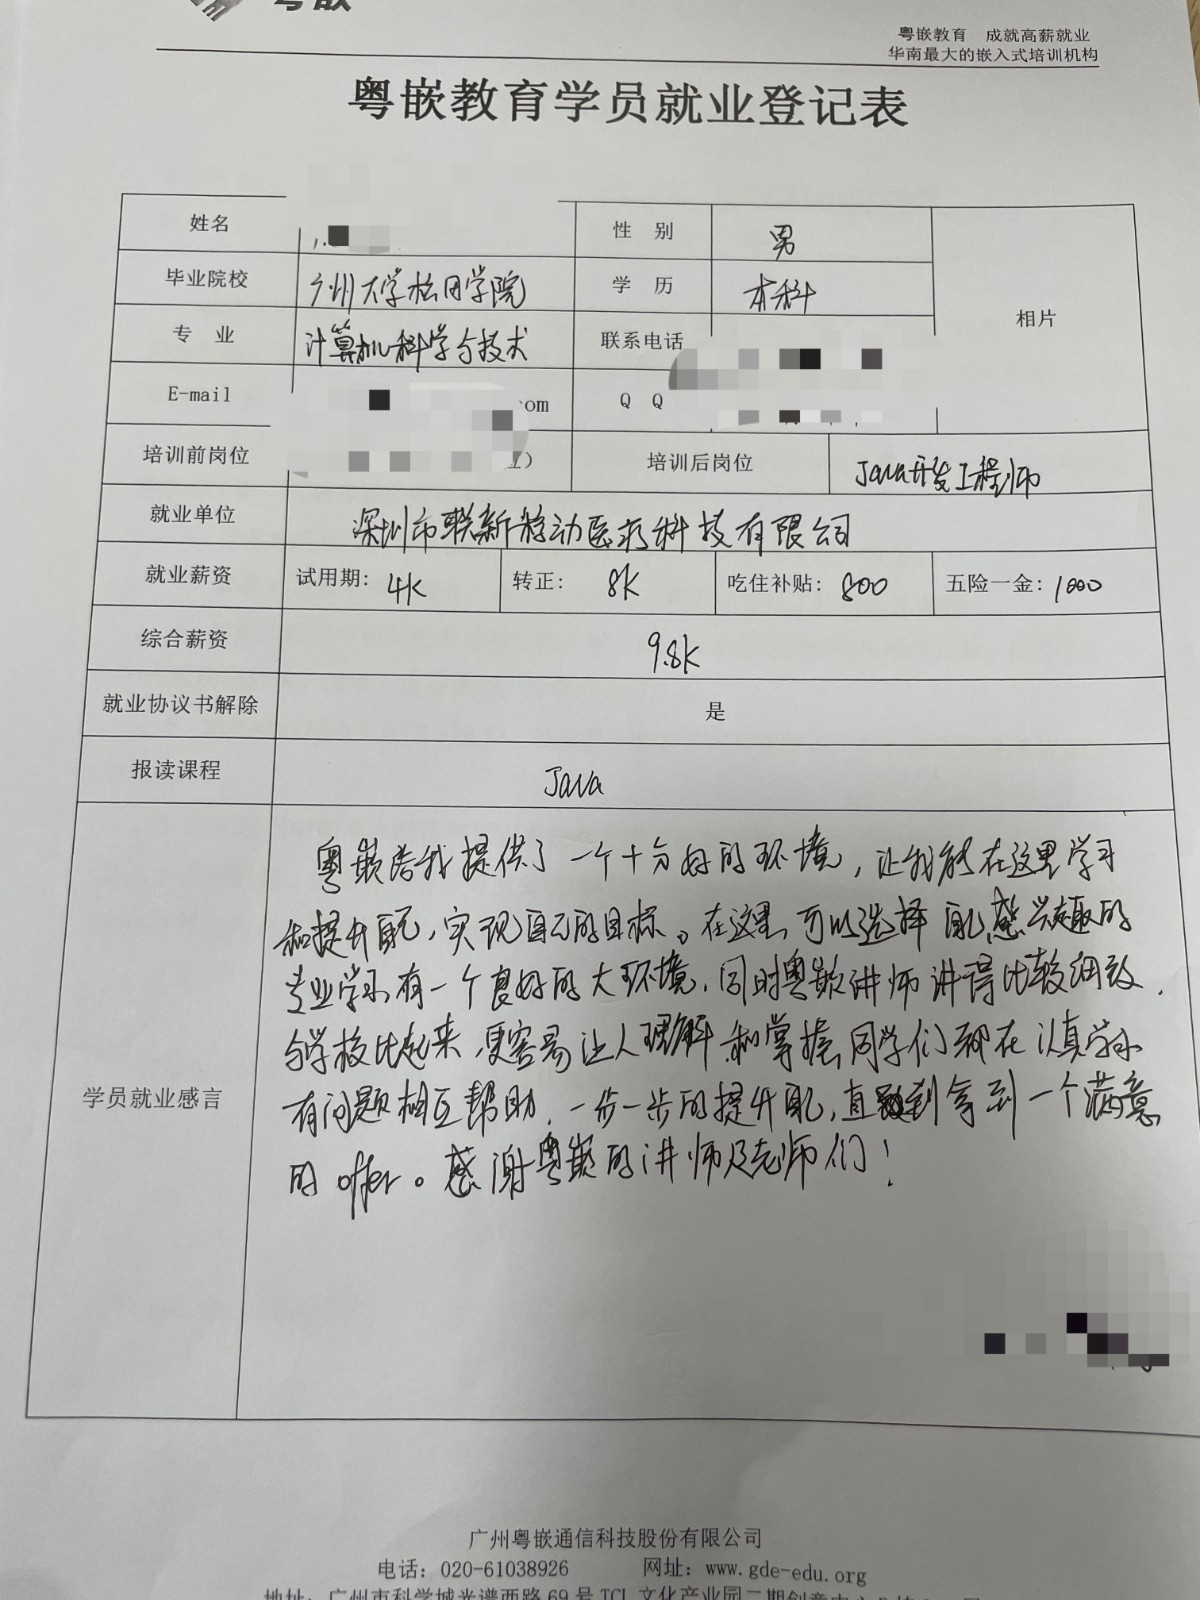 粤嵌
粤嵌教育 成就高薪就业
华南最大的嵌入式培训机构
粤嵌教育学员就业登记表
姓名 性 别 男 相片
毕业院校 广州大学松田学院 学 历 本科
专 业 计算机科学与技术 联系电话
E-mail com Q Q
培训前岗位 培训后岗位 Java开发工程师
就业单位 深圳市联新移动医疗科技有限公司
就业薪资 试用期: 4K 转正: 8K 吃住补贴: 800 五险一金: 1000
综合薪资 9.8K
就业协议书解除 是
报读课程 Java
学员就业感言
粤嵌给我提供了一个十分好的环境，让我能在这里学习
和提升自己，实现自己的目标。在这里可以选择自己感兴趣的
专业学习有一个良好的大环境，同时粤嵌讲师讲得比较细致，
与学校比起来，更容易让人理解和掌握，同学们都在认真学习
有问题相互帮助，一步一步的提升自己，直到拿到一个满意
的offer。感谢粤嵌的讲师及老师们！
广州粤嵌通信科技股份有限公司
电话: 020-61038926 网址: www.gde-edu.org
地址: 广州市科学城光谱西路69号TCL文化产业园二期创意中心